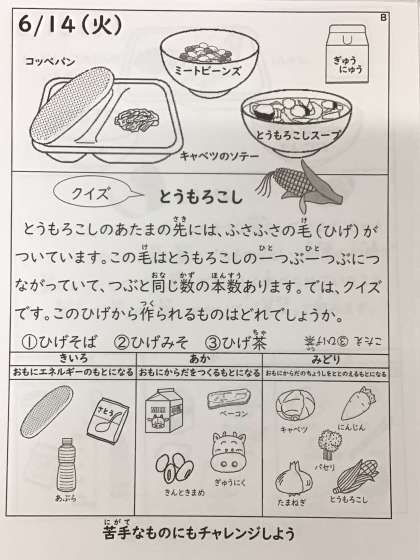 6/14(火)
B
コッペパン
ミートビーンズ
ぎゅう
にゅう
とうもろこしスープ
キャベツのソテー
クイズ
とうもろこし
とうもろこしのあたまの先には、ふさふさの毛(ひげ)が
ついています。この毛はとうもろこしの一つぶ一つぶにつ
ながっていて、つぶと同じ数の本数あります。では、クイズ
です。このひげから作られるものはどれでしょうか。
①ひげそば ②ひげみそ ③ひげ茶
こたえ ③ひげ茶
きいろ
おもにエネルギーのもとになる
さとう
あぶら
あか
おもにからだをつくるもとになる
MILK
ベーコン
きんときまめ
ぎゅうにく
みどり
おもにからだのちょうしをととのえるもとになる
キャベツ
にんじん
パセリ
たまねぎ
とうもろこし
苦手なものにもチャレンジしよう